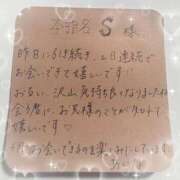 本指名 S 様
昨日に引き続き、2日連続で
お会いできて嬉しいです!!
お互い、沢山気持ち良くなりましたね
会う度に、お兄様のことが分かって
嬉しいです♡
またお会いできるのを楽しみにしています